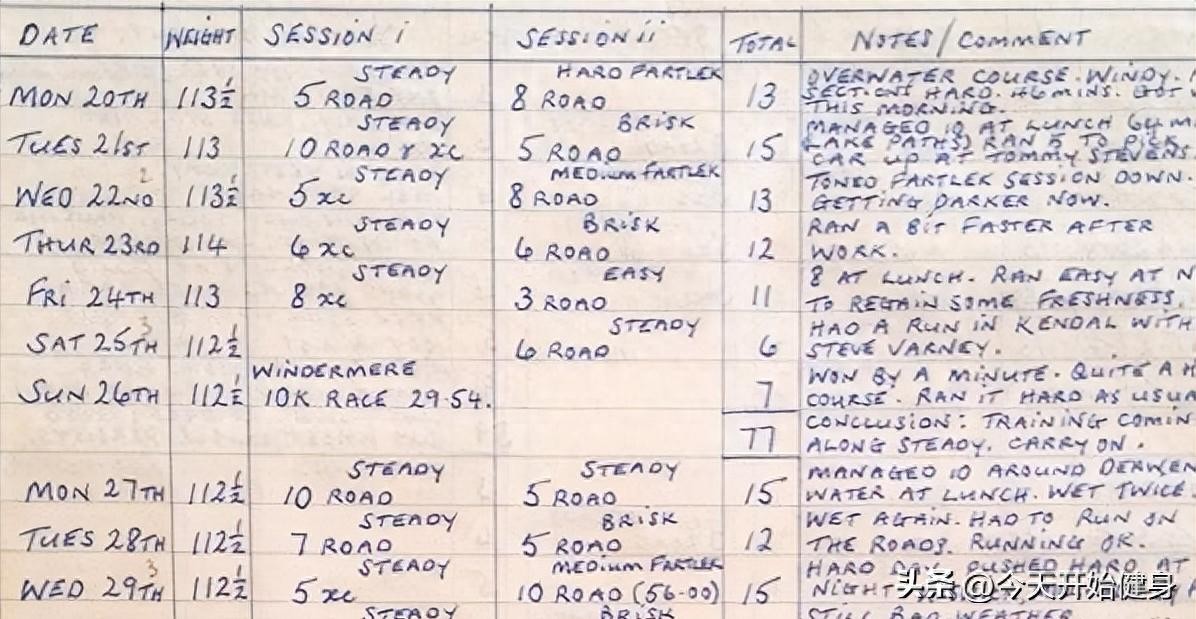 DATE WEIGHT SESSION i SESSION ii TOTAL NOTES/COMMENT
STEADY HARD FARTLEK OVERWATER COURSE. WINDY.
MON 20TH 113½ 5 ROAD 8 ROAD 13 SECTIONS HARD. 46 MINS. GOT
THIS MORNING.
STEADY BRISK MANAGED 10 AT LUNCH 64 M
TUES 21ST 113 10 ROAD & XC 5 ROAD 15 LAKE PATHS) RAN 5 TO PICK
CAR UP AT TOMMY STEVENS.
STEADY MEDIUM FARTLEK TONED FARTLEK SESSION DOWN.
WED 22ND 2 113½ 5 XC 8 ROAD 13 GETTING DARKER NOW.
STEADY BRISK RAN A BIT FASTER AFTER
THUR 23RD 114 6 XC 6 ROAD 12 WORK.
STEADY EASY 8 AT LUNCH. RAN EASY AT N
FRI 24TH 113 8 XC 3 ROAD 11 TO REGAIN SOME FRESHNESS.
3 STEADY HAD A RUN IN KENDAL WITH
SAT 25TH 112½ 6 ROAD 6 STEVE VARNEY.
WINDERMERE WON BY A MINUTE. QUITE A H
SUN 26TH 112½ 10K RACE 29-54. 7 COURSE. RAN IT HARD AS USUA
77 CONCLUSION: TRAINING COMIN
ALONG STEADY. CARRY ON.
STEADY STEADY MANAGED 10 AROUND DERWEN
MON 27TH 112½ 10 ROAD 5 ROAD 15 WATER AT LUNCH. WET TWICE.
STEADY BRISK WET AGAIN. HAD TO RUN ON
TUES 28TH 112½ 7 ROAD 5 ROAD 12 THE ROADS. RUNNING OK.
3 STEADY MEDIUM FARTLEK HARD DAY. PUSHED HARD AT
WED 29TH 112½ 5 XC 10 ROAD (56-00) 15 NIGHT
STEADY BRISK STILL BAD WEATHER
头条 @今天开始健身